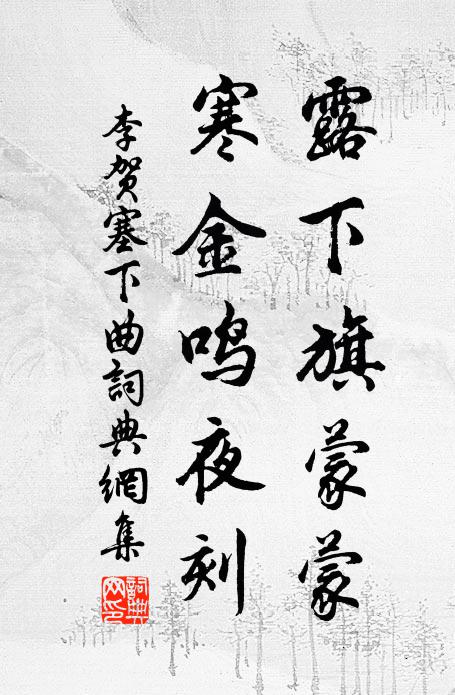 露下旗蒙蒙
寒金鸣夜刻
李贺塞下曲詞典網集